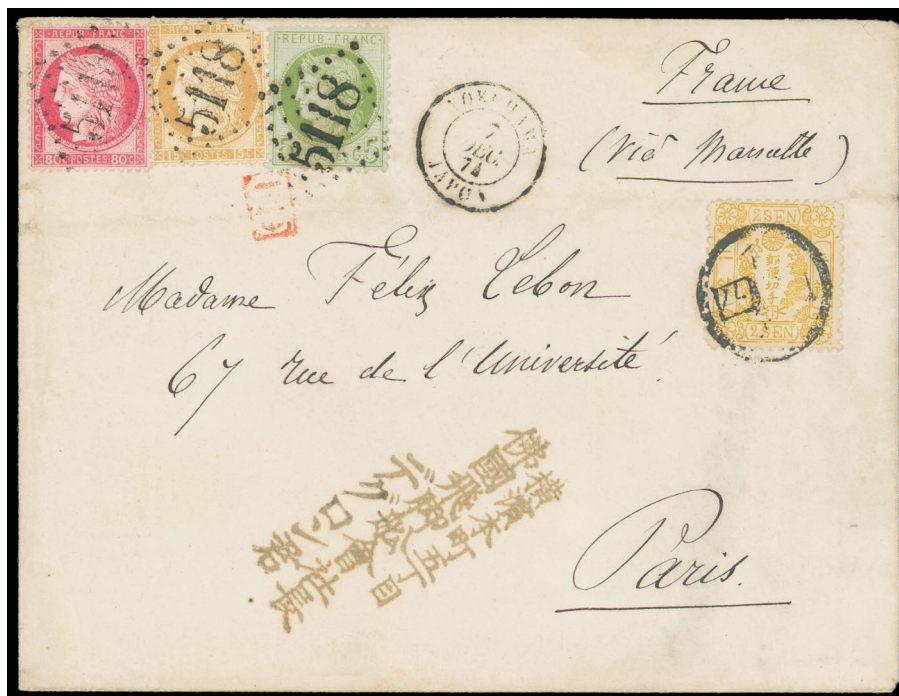 REPUB·FRANC
5118
80c·POSTES·80c
REPUB·FRANC
5118
15c POSTES 15c
REPUB·FRANC
5118
5c
5c
PD
YOKOHAMA
7
DEC.
74
JAPON
France
(Via Marseille)
2 SEN
郵便切手
2 SEN
Madame Félix Lebon
67 rue de l'Université
Paris.
横濱本町五丁目
佛國飛脚舩會社長
デグロン君